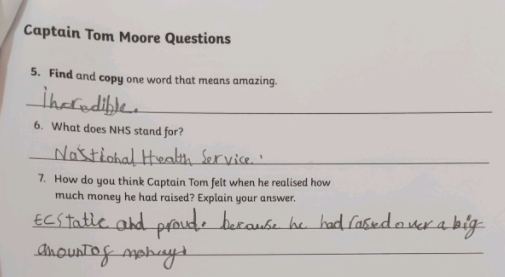 Captain Tom Moore Questions
5. Find and copy one word that means amazing.
Incredible.
6. What does NHS stand for?
Nastional Health Service.
7. How do you think Captain Tom felt when he realised how
much money he had raised? Explain your answer.
Ecstatic and proud. because he had raised over a big
amount of money